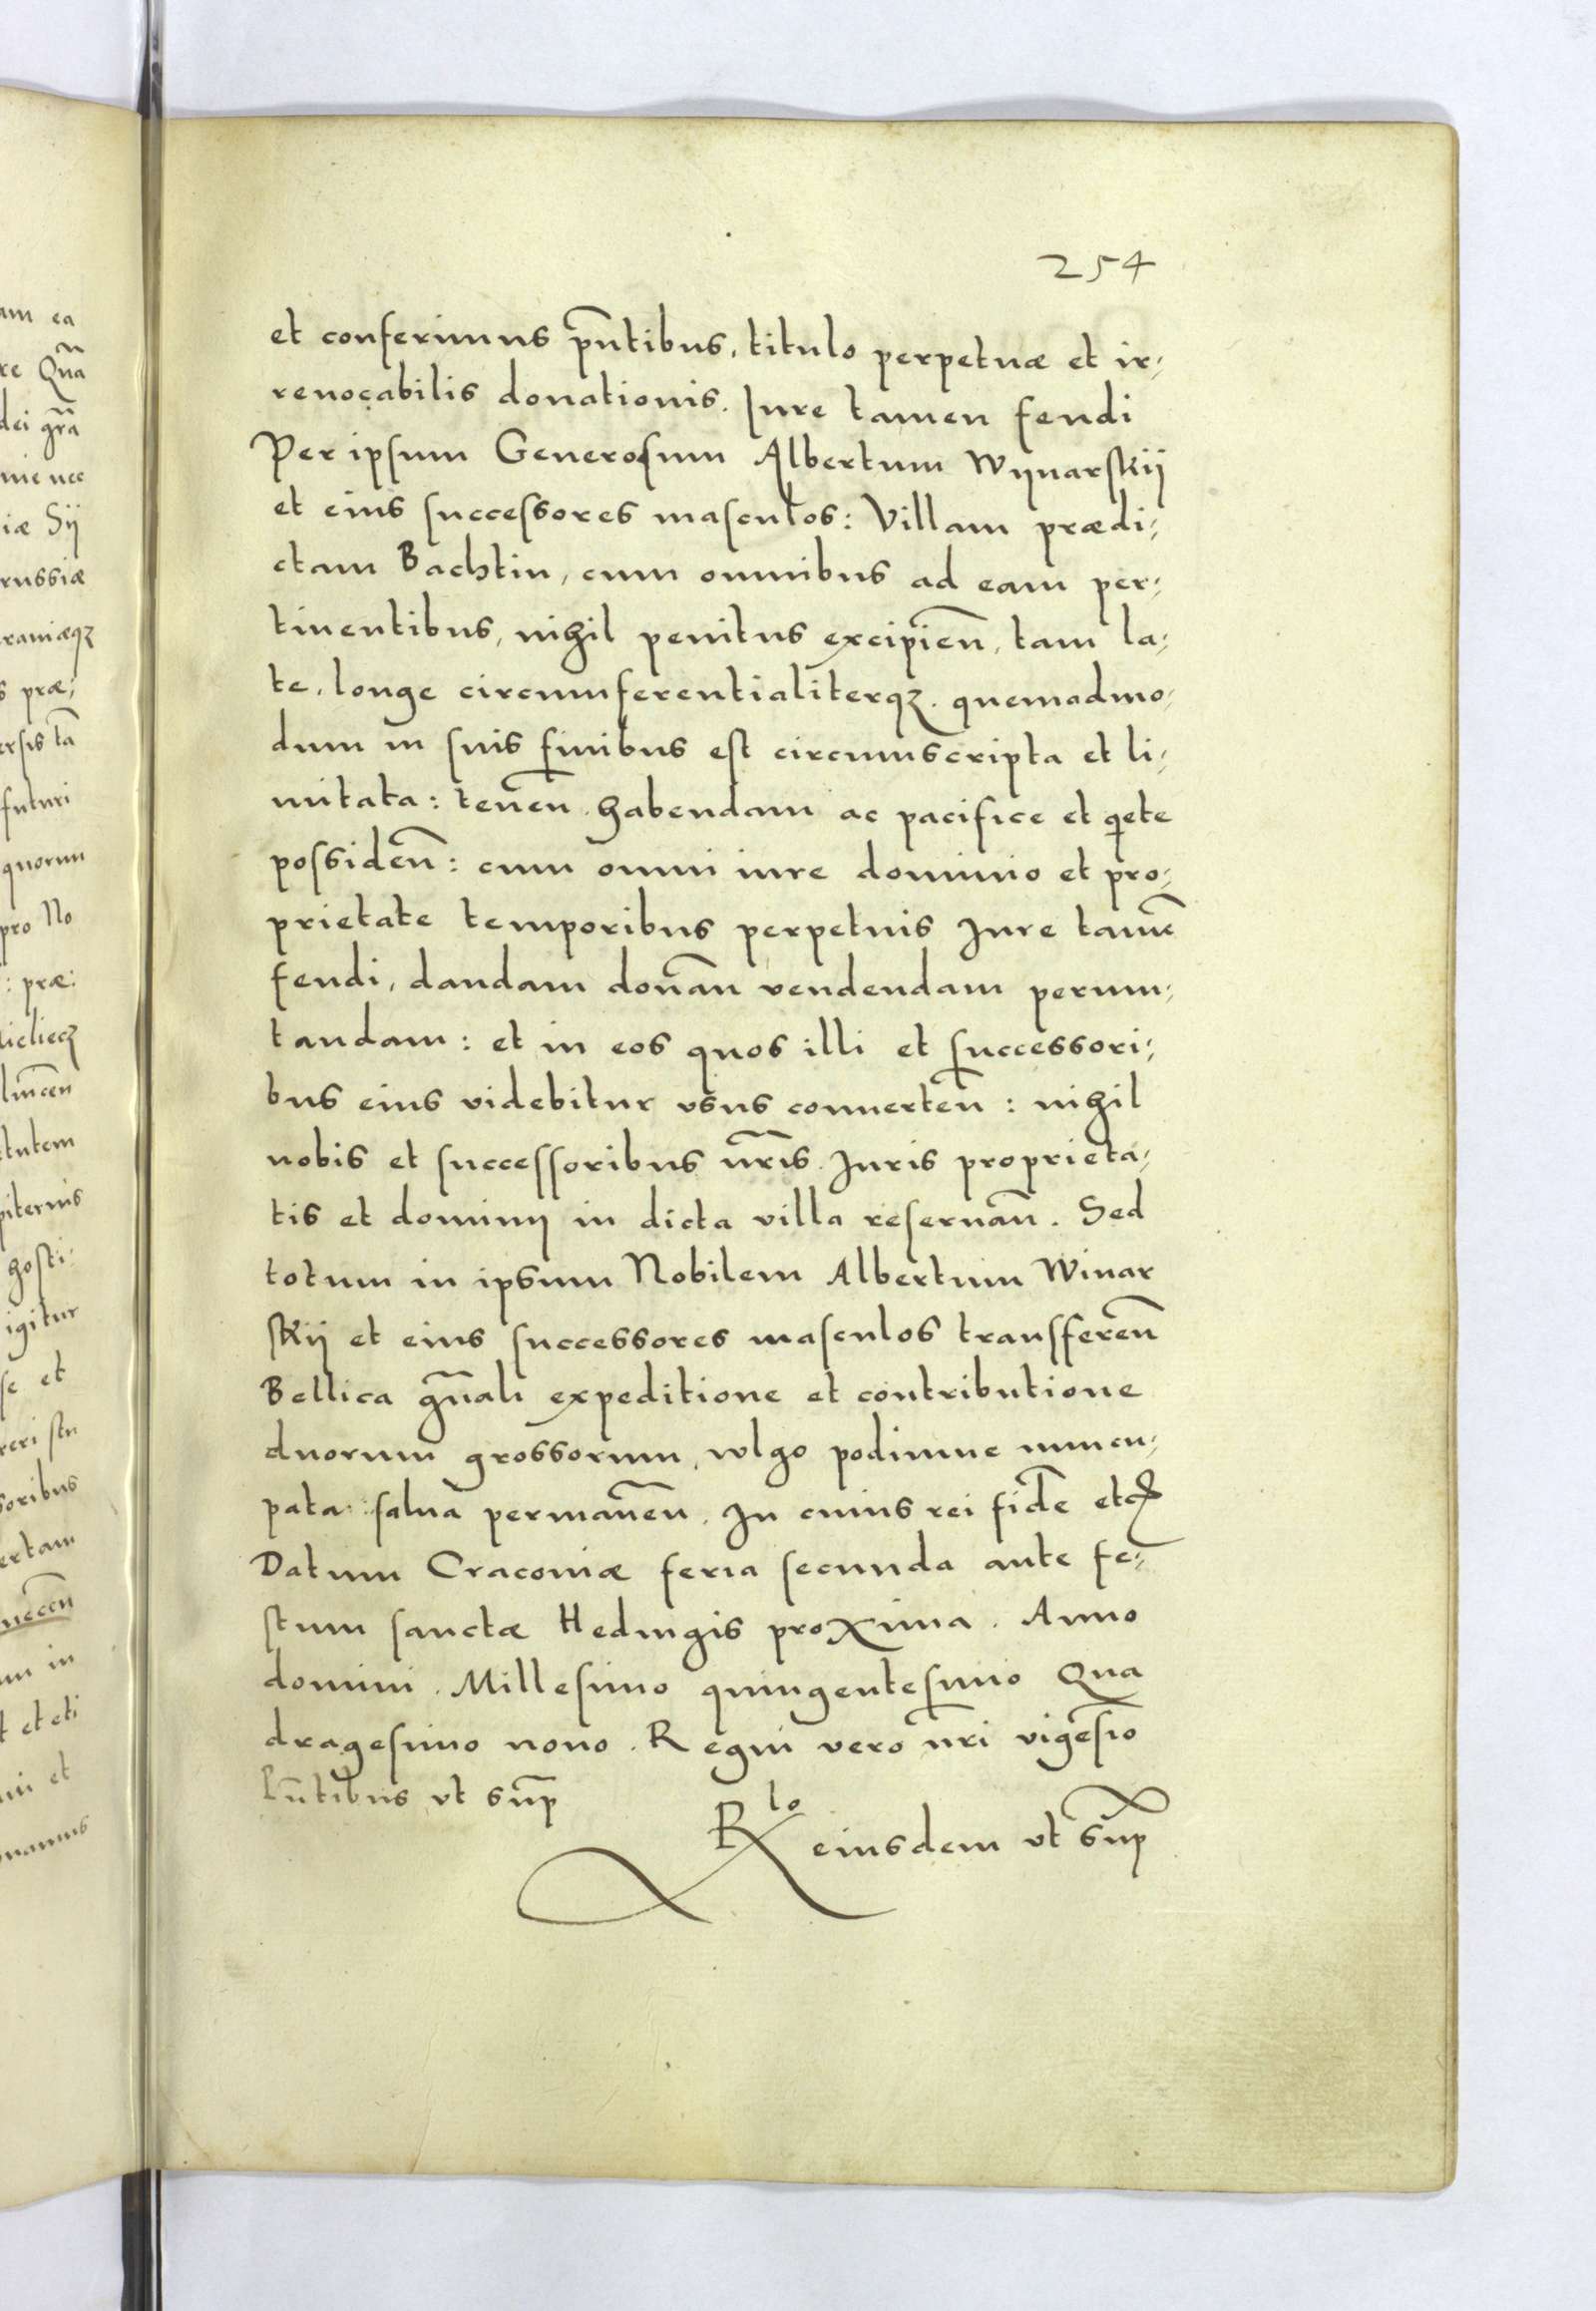 254
et conferimus pn̄tibus, titulo perpetuæ et ir,
reuocabilis donationis. Iure tamen feudi
Per ipsum Generosum Albertum Wynarskij
et eius successores masculos: Villam prædi,
ctam Bachtin, cum omnibus ad eam per,
tinentibus, nihil penitus excipien̄, tam la,
te, longe circumferentialiterqʒ. quemadmo,
dum in suis finibus est circumscripta et li,
mitata: tenen̄ habendam ac pacifice et qiete
possiden̄: cum omni iure dominio et pro,
prietate temporibus perpetuis Iure tamē
feudi, dandam donan̄ vendendam permu,
tandam: et in eos quos illi et successori,
bus eius videbitur vsus conuerten̄: nihil
nobis et successoribus nr̄is Iuris proprieta,
tis et dominij in dicta villa reseruan̄. Sed
totum in ipsum Nobilem Albertum Winar
skij et eius successores masculos transferen̄
Bellica gn̄ali expeditione et contributione
duorum grossorum, wlgo podimne nuncu,
pata: salua permanen̄. In cuius rei fidē etc
Datum Cracouiæ feria secunda ante fe,
stum sanctæ Heduigis proxima. Anno
domini. Millesimo quingentesimo Qua
dragesimo nono. Regni vero nr̄i vigesīo
Pn̄tibus vt sup̄
Rlo eiusdem vt sup̄
am ea
re Qn̄a
dei gr̄a
nie nec
iæ Sij
russiæ
raniæqʒ
s præ,
ersis tā
futuri
quorum
pro No
: præ:
lincen̄
tutem
piternis
hosti,
igitur
se et
reri stu
soribus
ertam
um in
t et eti
ni et